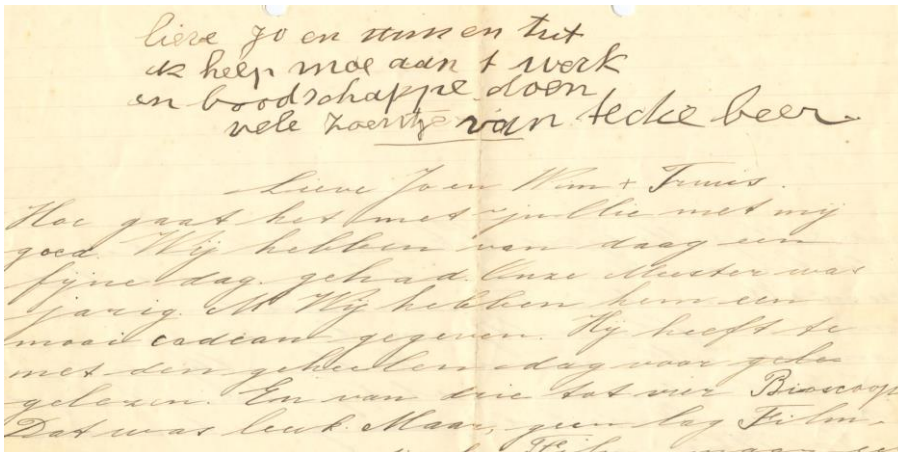 lieve Jo en en Trut
ik help moe aan t werk
en boodschappe doen
vele zoentje van tecke beer.
Lieve Jo en Wim + Truus.
Hoe gaat het met jullie met mij
goed. Wij hebben van daag een
fijne dag gehad. Onze Meester was
jarig. Wij hebben hem een
mooi cadeau gegeven. Hij heeft te
met den geheelen dag voor
gelezen. En van drie tot vier Bioscoop
Dat was leuk. Maar, geen lag Film.
Film maar